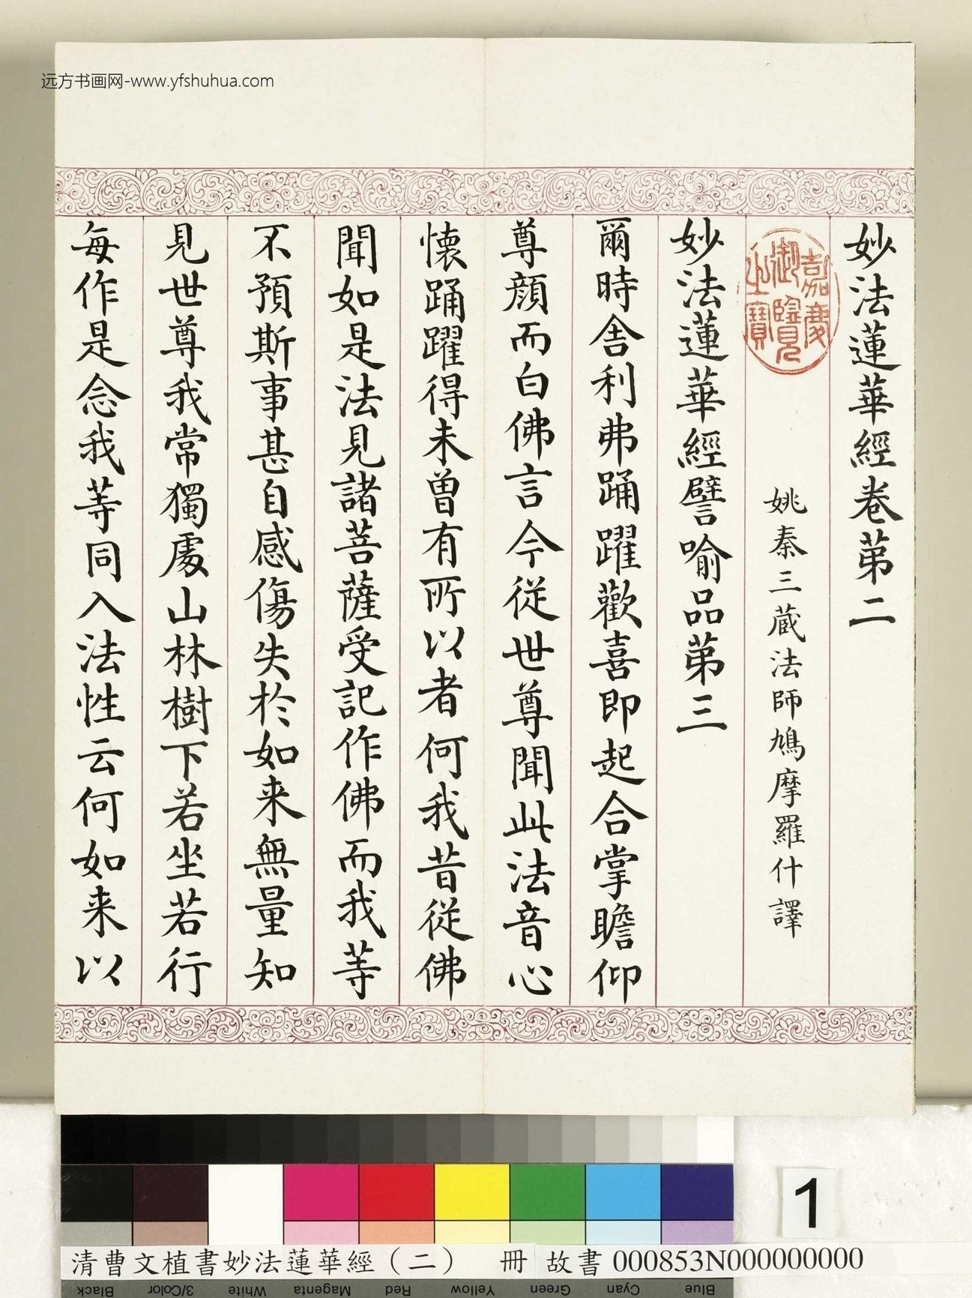 远方书画网-www.yfshuhua.com
妙法蓮華經卷苐二
嘉慶御覽之寶
姚秦三蔵法師鳩摩羅什譯
妙法蓮華經譬喻品苐三
爾時舎利弗踊躍歡喜即起合掌瞻仰
尊顔而白佛言今從世尊聞此法音心
懐踊躍得未曾有所以者何我昔從佛
聞如是法見諸菩薩受記作佛而我等
不預斯事甚自感傷失於如来無量知
見世尊我常獨處山林樹下若坐若行
每作是念我等同入法性云何如来以
1
清曹文植書妙法蓮華經（二） 冊 故書 000853N000000000
Black 3/Color White Magenta Red Yellow Green Cyan Blue